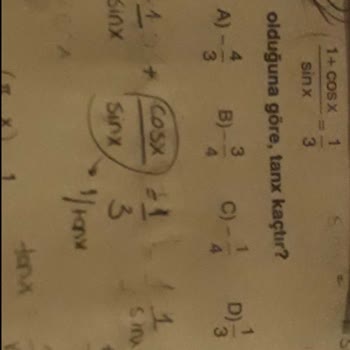 1+cosx / sinx = 1/3
olduğuna göre, tanx kaçtır?
A) -4/3 B) -3/4 C) -1/4 D) 1/3
1/sinx + cosx/sinx = 1/3
1/tanx
1/sinx
tanx